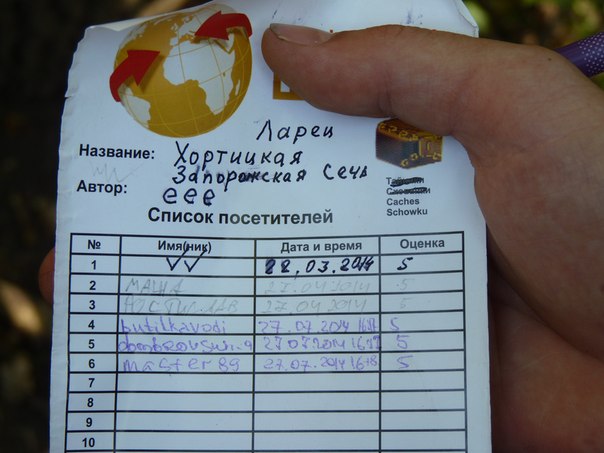 Ларец
Название: Хортицкая
Запорожская Сечь
Автор: еее
Caches
Schowku
Список посетителей
№ Имя(ник) Дата и время Оценка
1 VV 22.03.2014 5
2 МАША 27.04.2014 5
3 27.04.2014 5
4 butilkavodi 27.07.2014 5
5 27.07.2014 16:17 5
6 master89 27.07.2014 16:18 5
7
8
9
10